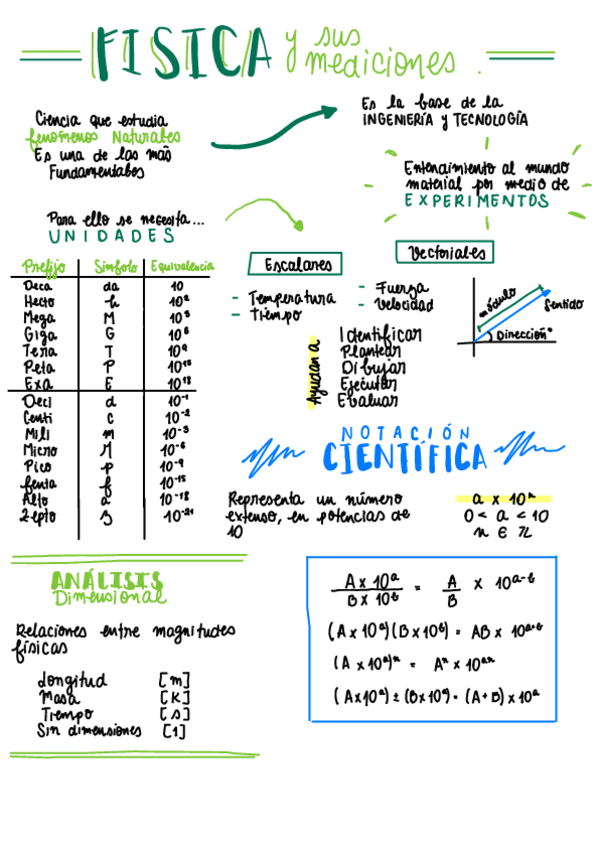 FISICA y sus mediciones.
Ciencia que estudia
fenómenos Naturales
Es una de las más
Fundamentales
Es la base de la
INGENIERÍA y TECNOLOGÍA
Entendimiento al mundo
material por medio de
EXPERIMENTOS
Para ello se necesita...
UNIDADES
Prefijo Simbolo Equivalencia
Deca da 10
Hecto h 10²
Mega M 10³
Giga G 10⁶
Tera T 10⁹
Peta P 10¹⁵
Exa E 10¹⁸
Deci d 10⁻¹
Centi c 10⁻²
Mili m 10⁻³
Micro M 10⁻⁶
Pico p 10⁻⁹
femta f 10⁻¹⁵
Atto a 10⁻¹⁸
Zepto z 10⁻²¹
Escalares
- Temperatura
- Tiempo
Vectoriales
- Fuerza
- Velocidad
módulo
Sentido
Dirección°
Ayudan a
Identificar
Plantear
Dibujar
Ejecutar
Evaluar
NOTACIÓN
CIENTÍFICA
Representa un número
extenso, en potencias de
10
a x 10ⁿ
0 < a < 10
n ∈ ℤ
ANÁLISIS
Dimensional
Relaciones entre magnitudes
físicas
Longitud [m]
Masa [K]
Tiempo [s]
Sin dimensiones [1]
A x 10ᵃ / B x 10ᵇ = A/B x 10ᵃ⁻ᵇ
(A x 10ᵃ)(B x 10ᵇ) = AB x 10ᵃ⁺ᵇ
(A x 10ᵃ)ⁿ = Aⁿ x 10ᵃⁿ
(A x 10ᵃ) ± (B x 10ᵃ) = (A + B) x 10ᵃ